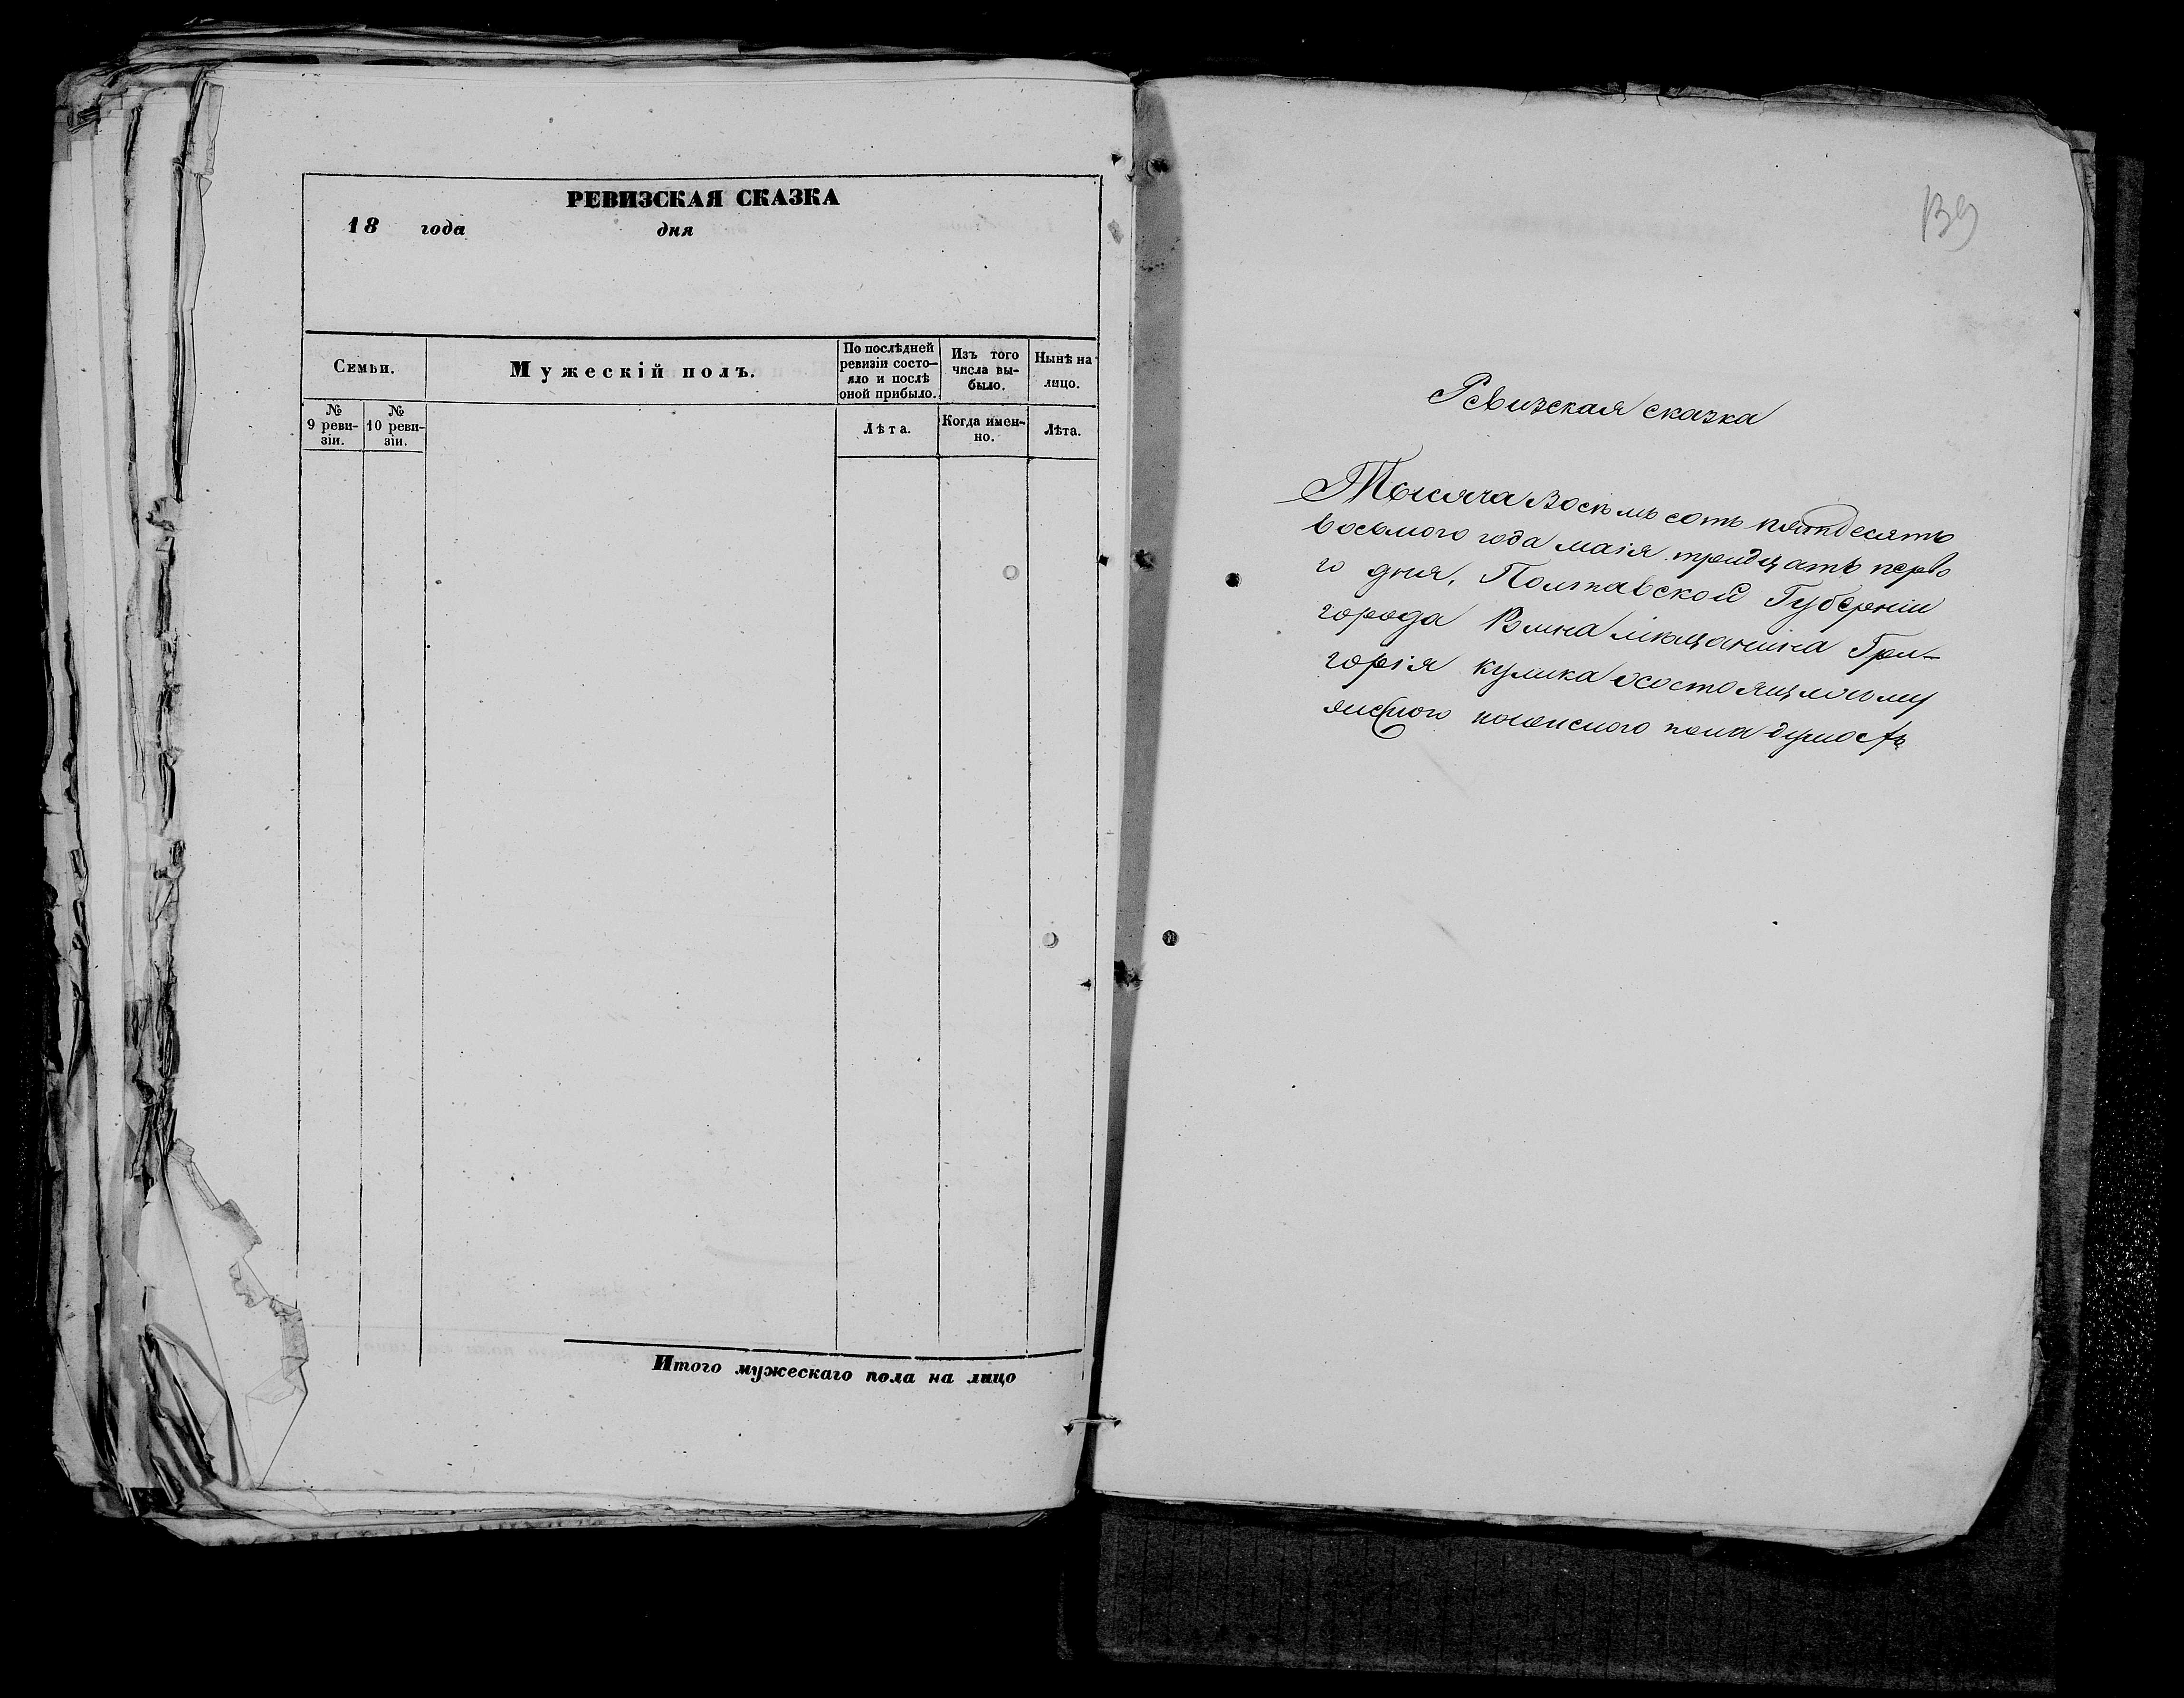 РЕВИЗСКАЯ СКАЗКА
18 года дня
Семьи.
Мужескій полъ.
По послѣдней
ревизіи состо-
яло и послѣ
оной прибыло.
Изъ того
числа вы-
было.
Нынѣ на
лицо.
№
9 реви-
зіи.
№
10 реви-
зіи.
Лѣта.
Когда имен-
но.
Лѣта.
Итого мужескаго пола на лицо
139
Ревизская сказка
Тысяча Восемь сотъ пятдесятъ
восьмого года маія тридцать перво
го дня, Полтавской Губерніи
города мѣщанина Гри-
горія кулика
пола